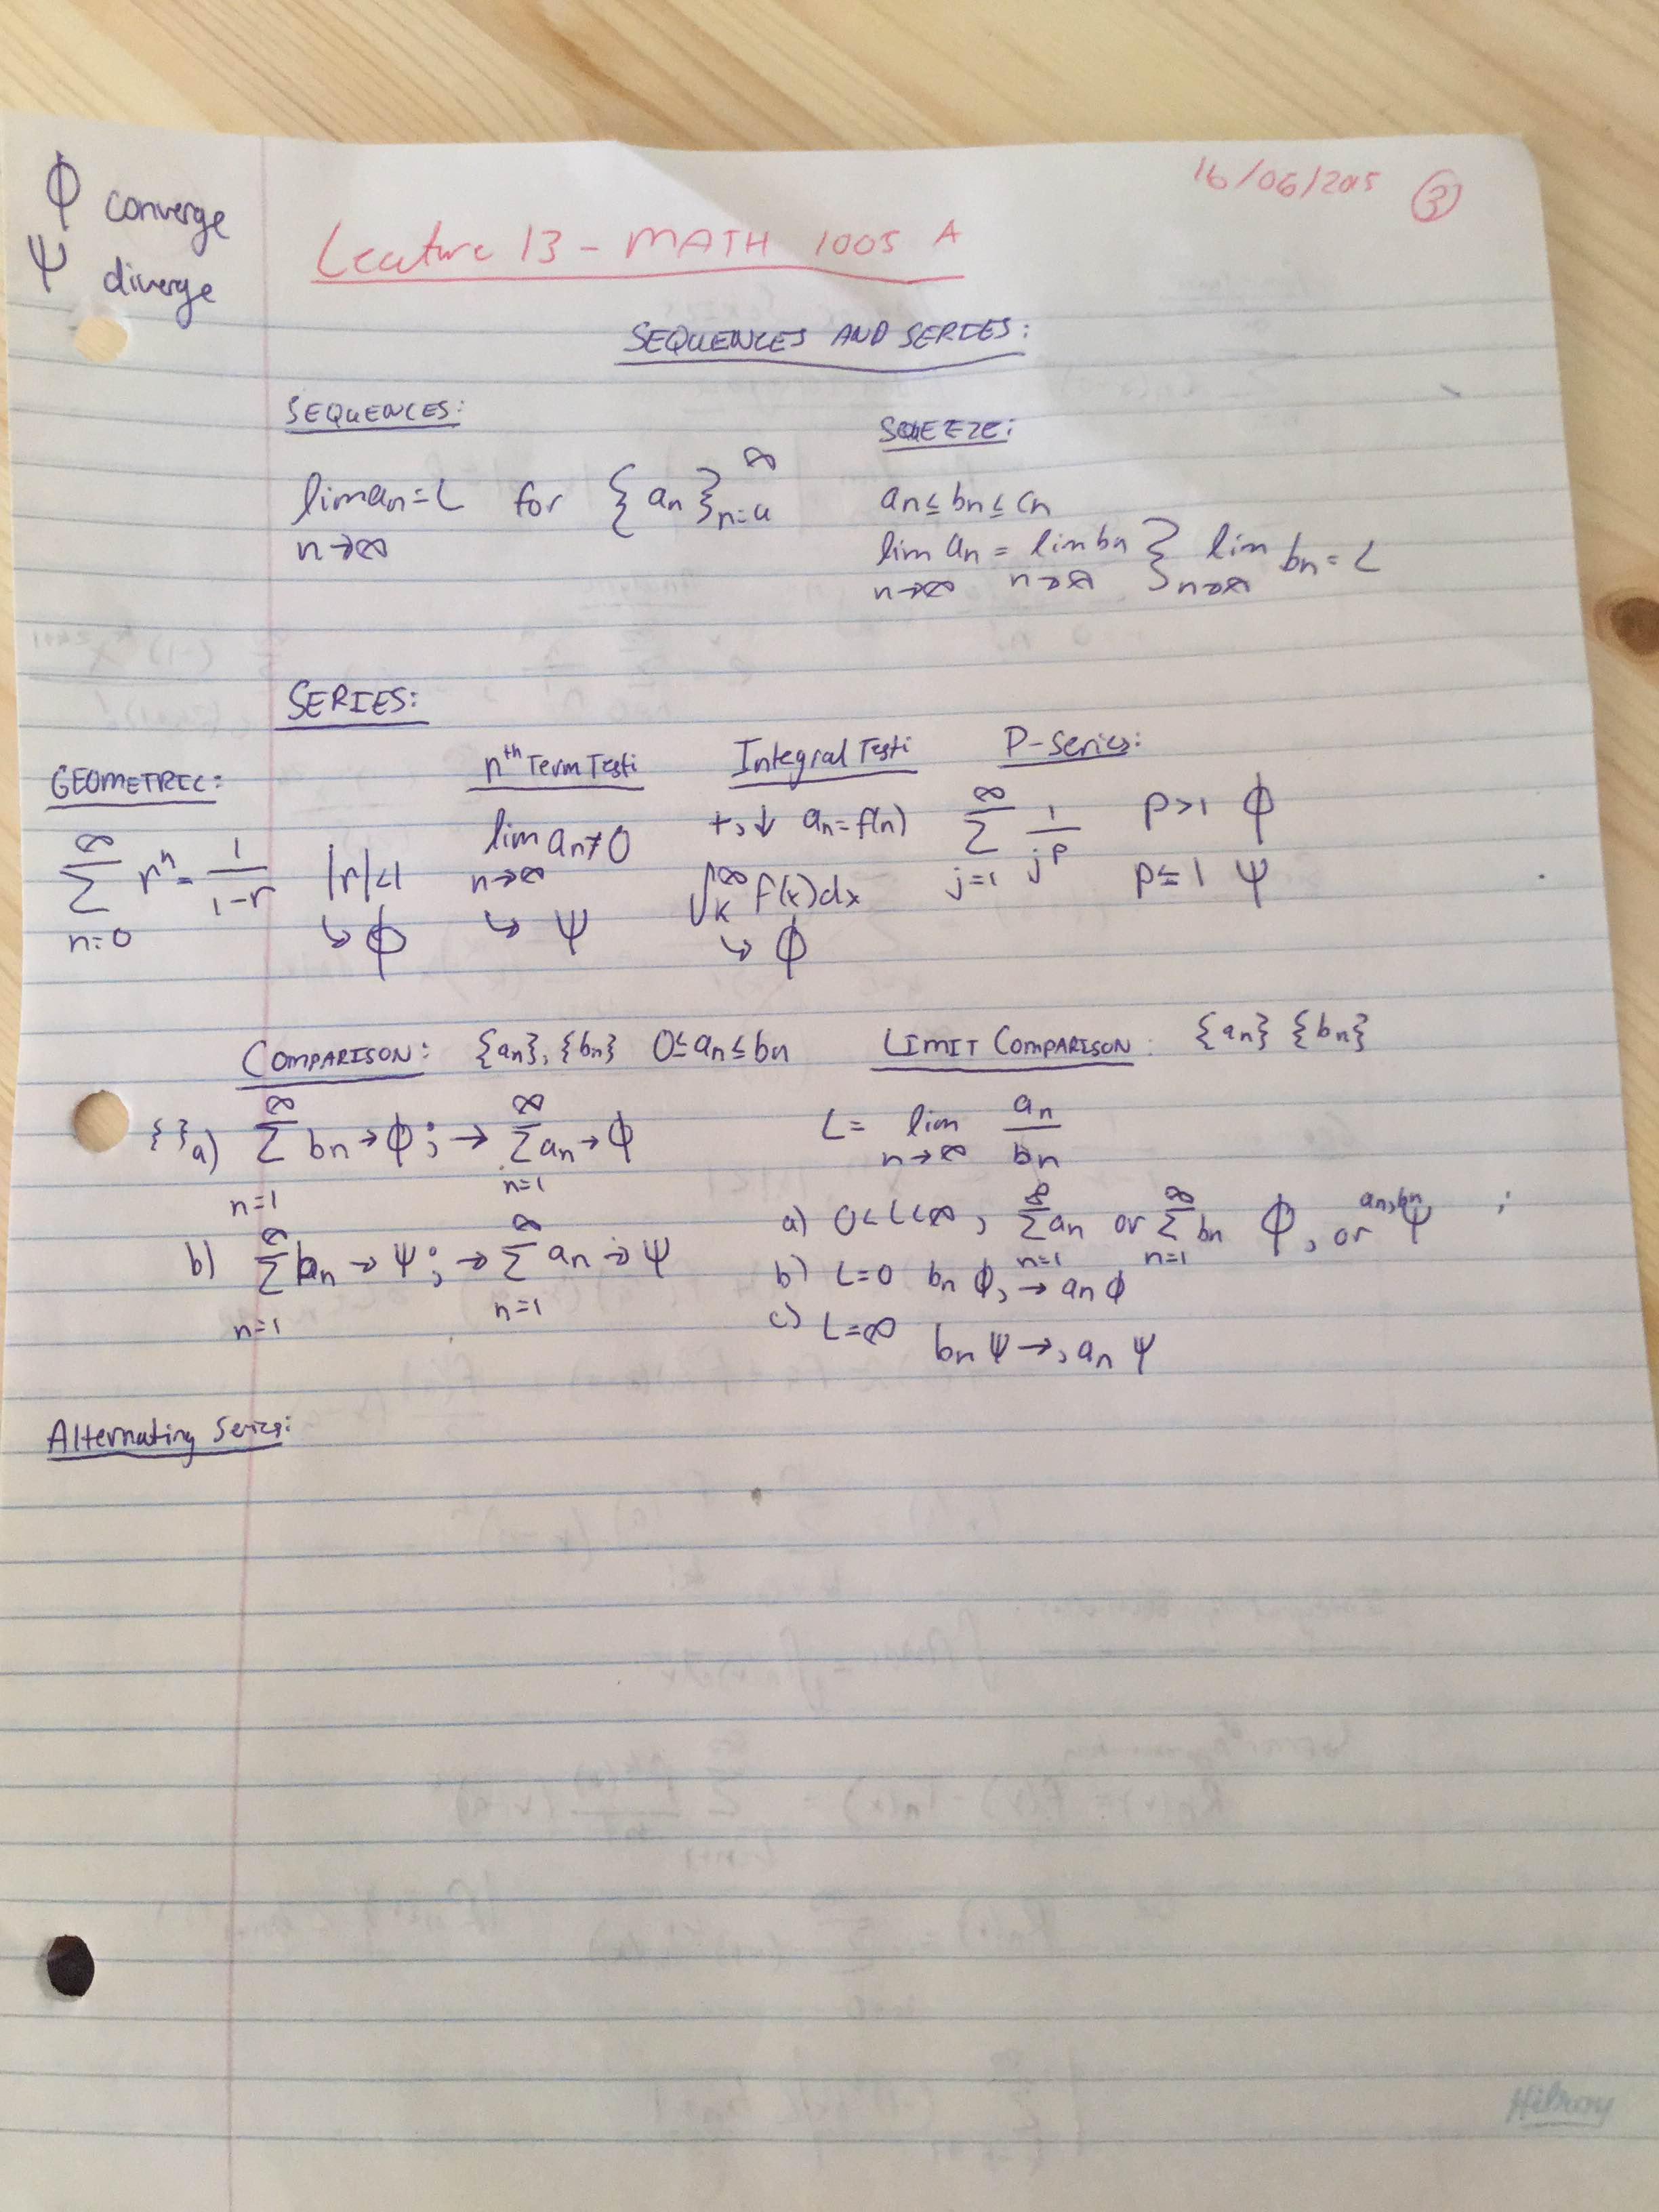 16/06/2015 ③
ϕ converge
ψ diverge
Lecture 13 - MATH 1005 A
SEQUENCES AND SERIES:
SEQUENCES:
lim an = L for { an }∞ n=a
n→∞
SQUEEZE:
an ≤ bn ≤ cn
lim an = lim bn } lim bn = L
n→∞ n→∞ n→∞
SERIES:
GEOMETREC:
∞
∑ rⁿ = 1/(1-r) |r|<1
n=0 ↳ ϕ
nth Term Test:
lim an ≠ 0
n→∞
↳ ψ
Integral Test:
+, ↓ an = f(n)
∫K∞ f(x)dx
↳ ϕ
P-series:
∞
∑ 1/j^p p>1 ϕ
j=1 p≤1 ψ
COMPARISON: {an}, {bn} 0≤an≤bn
{ } a) ∞∑n=1 bn → ϕ; → ∞∑n=1 an → ϕ
b) ∞∑n=1 bn → ψ; → ∞∑n=1 an → ψ
LIMIT COMPARISON: {an} {bn}
L = lim an/bn
n→∞
a) 0<L<∞, ∞∑n=1 an or ∞∑n=1 bn ϕ, or an,bn ψ ;
b) L=0 bn ϕ, → an ϕ
c) L=∞ bn ψ →, an ψ
Alternating Series:
Hilroy